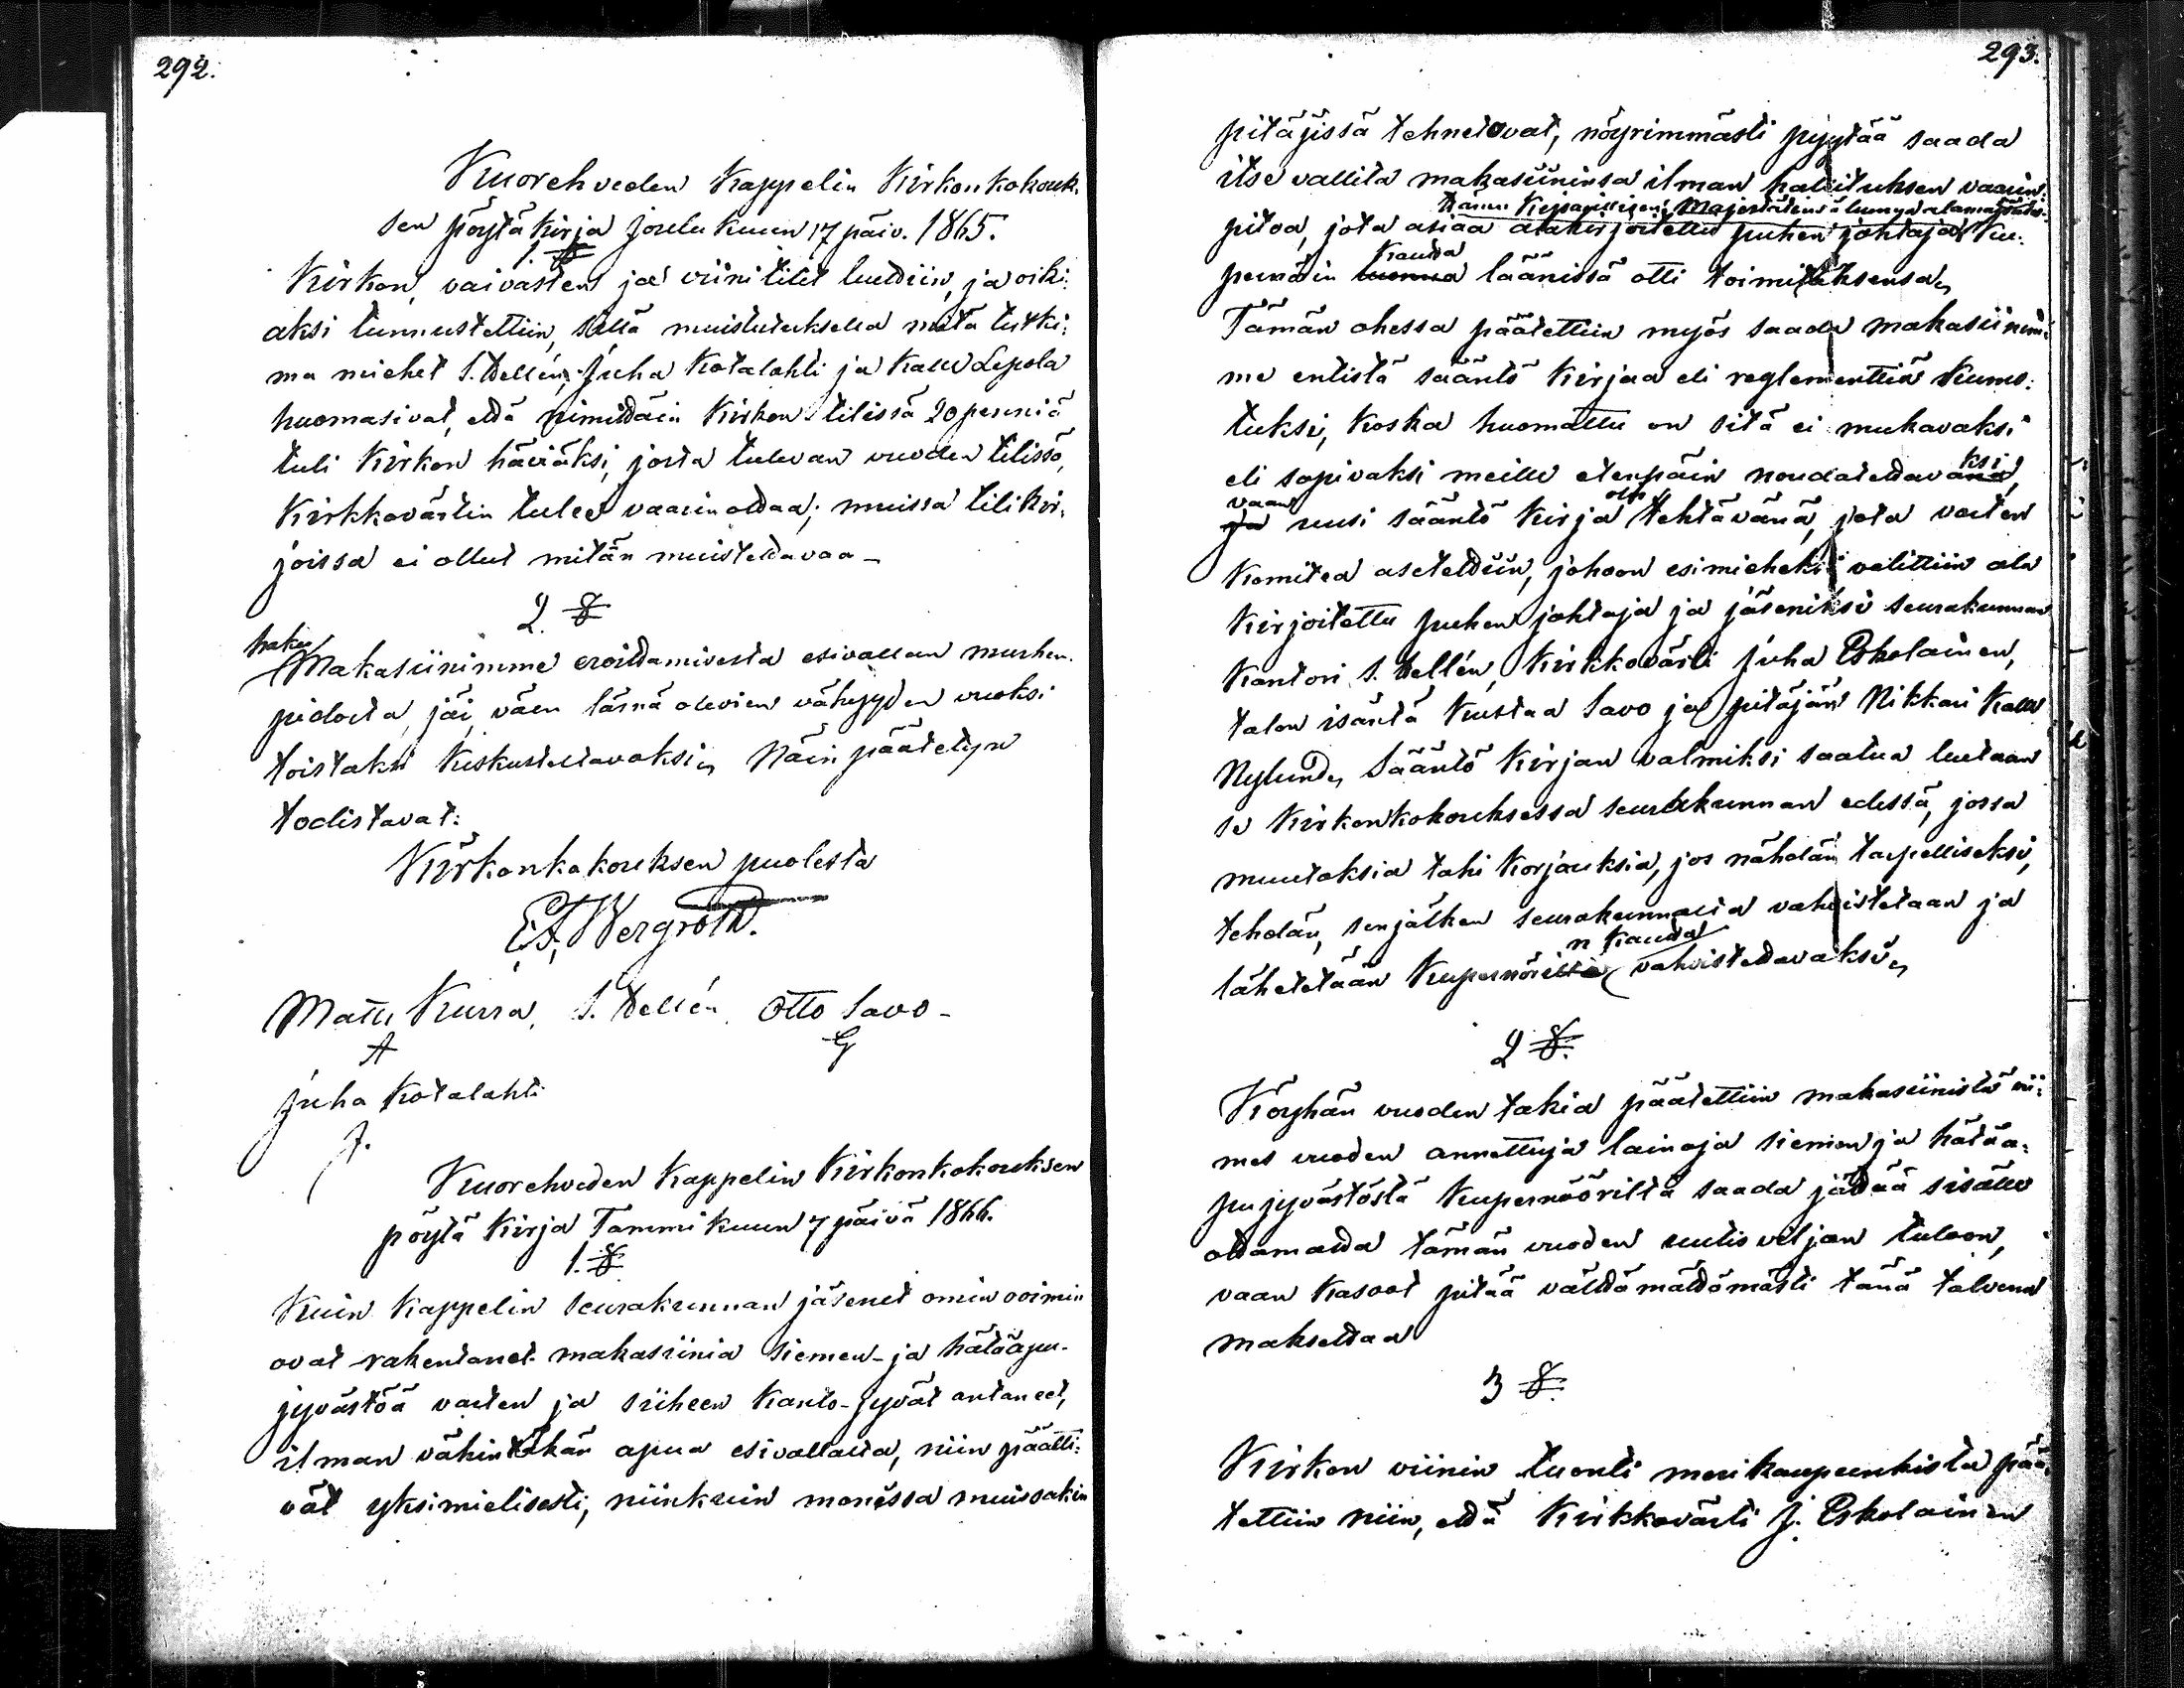 292.
Kuorehveden Kappelin Kirkonkokouk-
sen pöytäkirja Joulukuun 17 päiv. 1865.
1. §
Kirkon, vaivasten ja viinitilit luettiin, ja oiki-
aksi tunnustettiin, sillä muistutuksella mitä tutki-
ma miehet S. Tellén, Juha Kotalahti ja Kalle Lepola
huomasivat, että nimittäin Kirkon tilissä 20 penniä
tuli Kirkon häviäksi, josta tulevan vuoden tilissä,
Kirkkovärtin tulee vaarinottaa; muissa tilikir-
joissa ei ollut mitän muistettavaa_
2. §
haku
Makasiinimme eroittamisesta esivallan murhen-
pidosta, jäi väen läsnä olevien vähyyden vuoksi
toistaksi keskusteltavaksi, Näin päätetyn
todistavat:
Kirkonkokouksen puolesta
E.F. Wergroth.
Matti Kurra, S. Tellén, Otto Savo_
Juha Kotalahti
J.
Kuorehveden Kappelin Kirkonkokouksen
pöytä Kirja Tammikuun 7 päivä 1866.
1. §
Kuin Kappelin seurakunnan jäsenet omin voimin
ovat rakentanet makasiinia siemen- ja hätääpu-
jyvästöä varten ja siiheen Kanto-jyvät antaneet,
ilman vähintäkän apua esivallalta, niin päätti-
vät yksimielisesti, niinkuin monissa muissakin
293.
pitäjissä tehnet ovat, nöyrimmästi pyytää saada
itse vallita makasiininsa ilman hallituksen vaarin-
Hänen Keisarillisen Majestätinsä luona alamaisuudes-
pitoa, jota asiaa allakirjoitettu puhen johtaja Ku-
kautta
pernöin luonna läänissä otti toimittaksensa,
Tämän ohessa päätettiin myös saada makasiinim-
me entistä sääntö Kirjaa eli reglementtiä Kumo-
tuksi, Koska huomattu on sitä ei mukavaksi
eli sopivaksi meille etenpäin noudatettavana, ksi
vaan
ja uusi sääntö Kirja olla tehtävänä, jota varten
Komitea asetettiin, johoon esimieheksi valittiin ala
Kirjoitettu puhen johtaja ja jäseniksi seurakunnan
Kantori S. Tellén, Kirkkovärti Juha Eskolainen,
talon isäntä Kustaa Savo ja pitäjän Nikkari Kalle
Nylund, Sääntö Kirjan valmiksi saatua luetaan
se Kirkonkokouksessa seurakunnan edessä, jossa
muutoksia tahi Korjauksia, jos nähdän tarpelliseksi,
tehdän, sen jälken seurakunnalta vahvistetaan ja
n kautta
lähetetään Kupernörille vahvistettavaksi,
2 §.
Köyhän vuoden takia päätettiin makasiinista vii-
mes vuoden annettuja lainoja siemen ja hätäa-
pujyvästöstä Kupernööriltä saada jättää sisälle
ottamatta tämän vuoden uutisviljan tuloon,
vaan Kasvot pitää välttämättömästi tänä talvena
maksettaa
3 §.
Kirkon viinin tuonti merikaupunkista pää-
tettiin niin, että Kirkkovärti J. Eskolainen